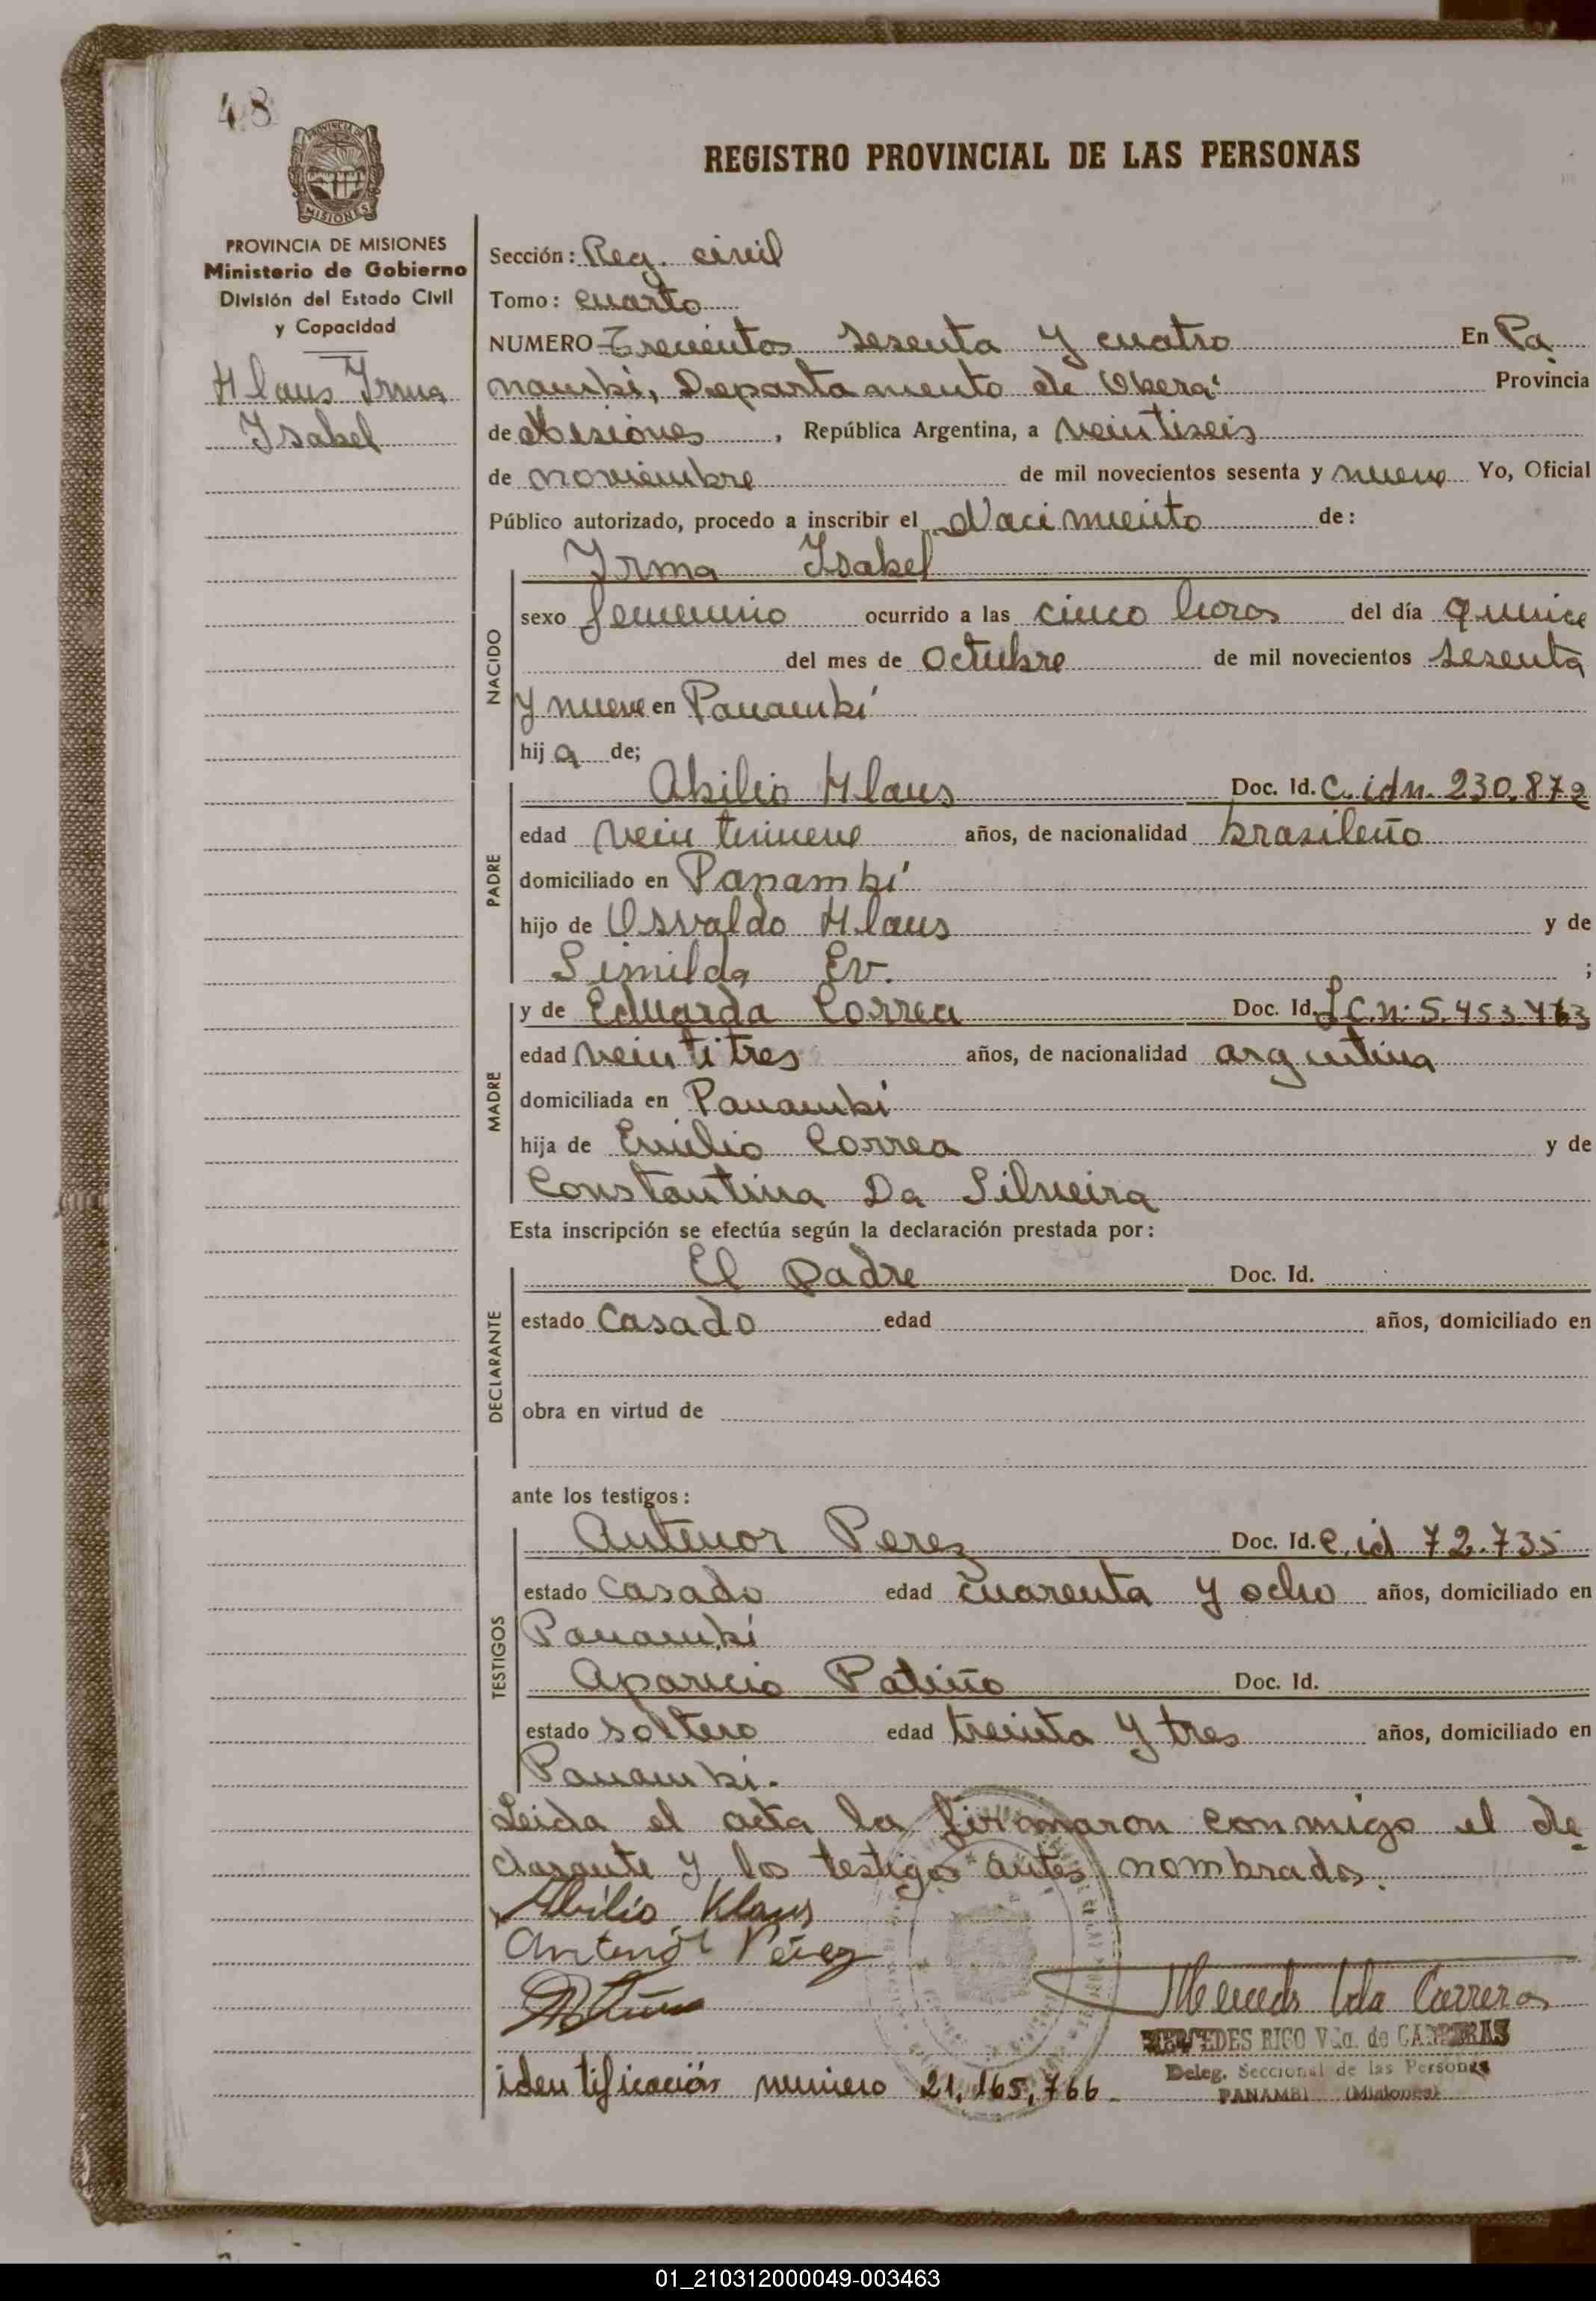 48
PROVINCIA DE
MISIONES
REGISTRO PROVINCIAL DE LAS PERSONAS
PROVINCIA DE MISIONES
Ministerio de Gobierno
División del Estado Civil
y Capacidad
Klaus Irma
Isabel
Sección: Reg. civil
Tomo: cuarto
NUMERO Trecientos sesenta y cuatro En Pa
nambí, Departamento de Oberá Provincia
de Misiones, República Argentina, a veintiseis
de noviembre de mil novecientos sesenta y nueve Yo, Oficial
Público autorizado, procedo a inscribir el Nacimiento de:
NACIDO
Irma Isabel
sexo femenino ocurrido a las cinco horas del día quince
del mes de octubre de mil novecientos sesenta
y nueve en Panambí
hija de;
PADRE
Abilio Klaus Doc. Id. C. idn. 230.872
edad veintinueve años, de nacionalidad brasileño
domiciliado en Panambí
hijo de Osvaldo Klaus y de
Limilda Ev. ;
MADRE
y de Eduarda Correa Doc. Id. L.C.n. 5.453.
edad veintitres años, de nacionalidad argentina
domiciliada en Panambí
hija de Emilio Correa y de
Constantina Da Silveira
Esta inscripción se efectúa según la declaración prestada por:
DECLARANTE
El padre Doc. Id.
estado casado edad años, domiciliado en
obra en virtud de
ante los testigos:
TESTIGOS
Antenor Perez Doc. Id. C. id 72.735
estado casado edad cuarenta y ocho años, domiciliado en
Panambí
Aparicio Patiño Doc. Id.
estado soltero edad treinta y tres años, domiciliado en
Panambí.
Leida el acta la firmaron conmigo el de
clarante y los testigos antes nombrados.
Abilio Klaus
Antenor Pérez
Mercedes Vda Carreras
MERCEDES RICO Vda. de CARRERAS
Deleg. Seccional de las Personas
PANAMBI (Misiones)
identificación numero 21.165.766
01_210312000049-003463